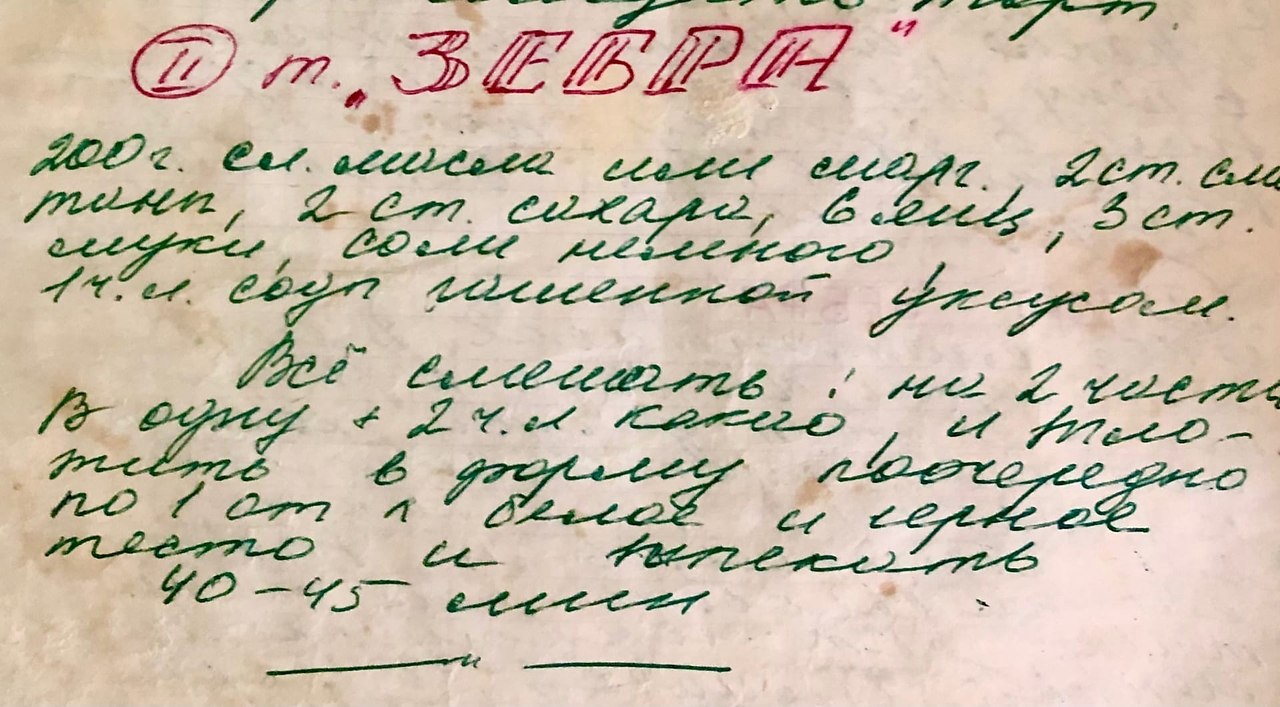 торт.
II т. „ЗЕБРА"
200 г. сл. масла или марг., 2 ст. сме
таны, 2 ст. сахара, 6 яиц, 3 ст.
муки, соли немного,
1 ч. л. соды гашенной уксусом.
Всё смешать : на 2 части
В одну + 2 ч. л. какао, и
в форму поочередно
по 1 ст л белое и черное
тесто и выпекать
40-45 мин
— " —